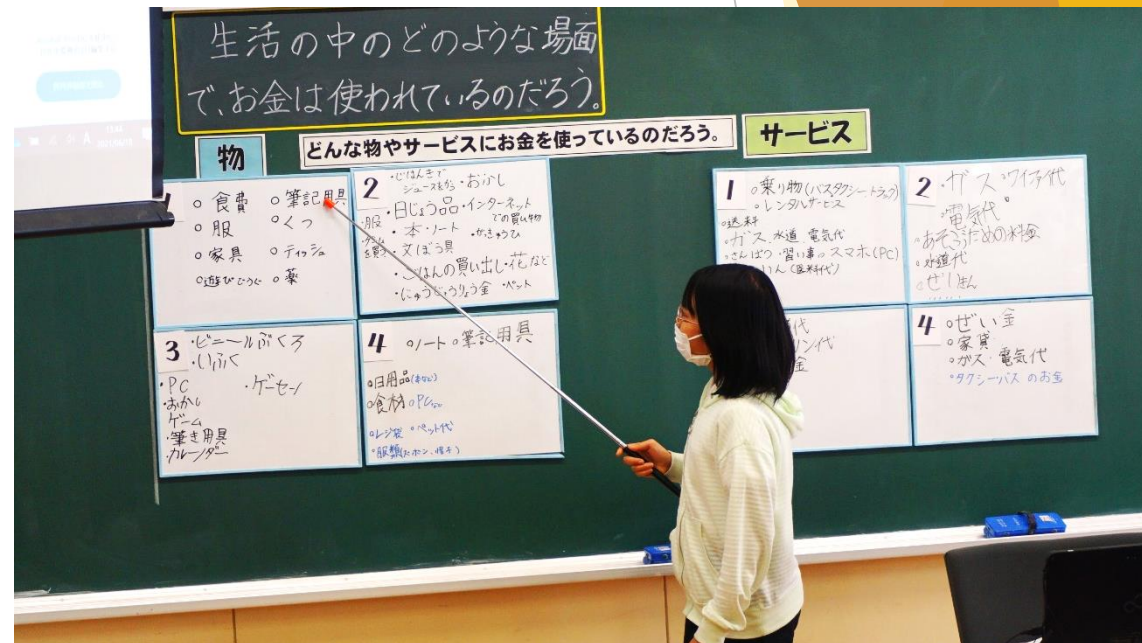 生活の中のどのような場面
で、お金は使われているのだろう。
物
どんな物やサービスにお金を使っているのだろう。
サービス
1
○食費 ○筆記用具
○服 ○くつ
○家具 ○ティッシュ
○遊びどうぐ ○薬
2
・じはんきで
ジュースをかう ・おかし
・日じょう品 ・インターネット
での買い物
・服 ・本・ノート
ゲーム
を買う ・文ぼう具
・ごはんの買い出し ・花など
・ペット
3
・ビニールぶくろ
・いふく
・PC ・ゲーセン
・おかし
ゲーム
・筆き用具
・カレンダー
4
○ノート ○筆記用具
○日用品(本など)
○食材 ○PC
○レジ袋 ○ペット代
○服類
1
○乗り物(バスタクシートラック)
○レンタルサービス
○送料
・ガス、水道、電気代
○さんぱつ ・習い事 ○スマホ(PC)
2
・ガス ・ワイファイ代
○電気代
○あそぶための料金
○水道代
○ぜいきん
代
リン代
金
4
○ぜい金
○家賃
○ガス・電気代
○タクシーバスのお金